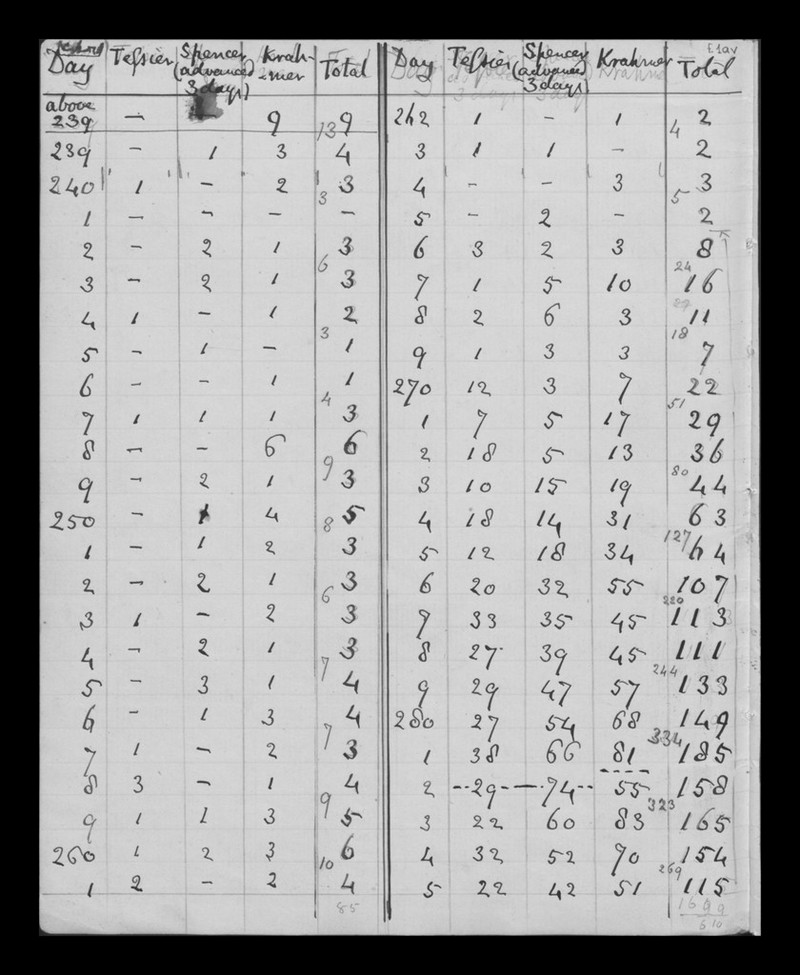 Day Tessier Spencer (advanced 3 days) Krahmer Total
above 239 — — 9 9
13
239 — 1 3 4
240 1 — 2 3
3
1 — — — —
2 — 2 1 3
6
3 — 2 1 3
4 1 — 1 2
3
5 — 1 — 1
6 — — 1 1
4
7 1 1 1 3
8 — — 6 6
9
9 — 2 1 3
250 — 1 4 5
8
1 — 1 2 3
2 — 2 1 3
6
3 1 — 2 3
4 — 2 1 3
7
5 — 3 1 4
6 — 1 3 4
7
7 1 — 2 3
8 3 — 1 4
9
9 1 1 3 5
260 1 2 3 6
10
1 2 — 2 4
85
Day Tessier Spencer (advanced 3 days) Krahmer Total
262 1 — 1 2
4
3 1 1 — 2
4 — — 3 3
5
5 — 2 — 2
6 3 2 3 8
24
7 1 5 10 16
8 2 6 3 11
18
9 1 3 3 7
270 12 3 7 22
51
1 7 5 17 29
2 18 5 13 36
80
3 10 15 19 44
4 18 14 31 63
127
5 12 18 34 64
6 20 32 55 107
220
7 33 35 45 113
8 27 39 45 111
244
9 29 47 57 133
280 27 54 68 149
334
1 38 66 81 185
2 29 74 55 158
323
3 22 60 83 165
4 32 52 70 154
269
5 22 42 51 115
610